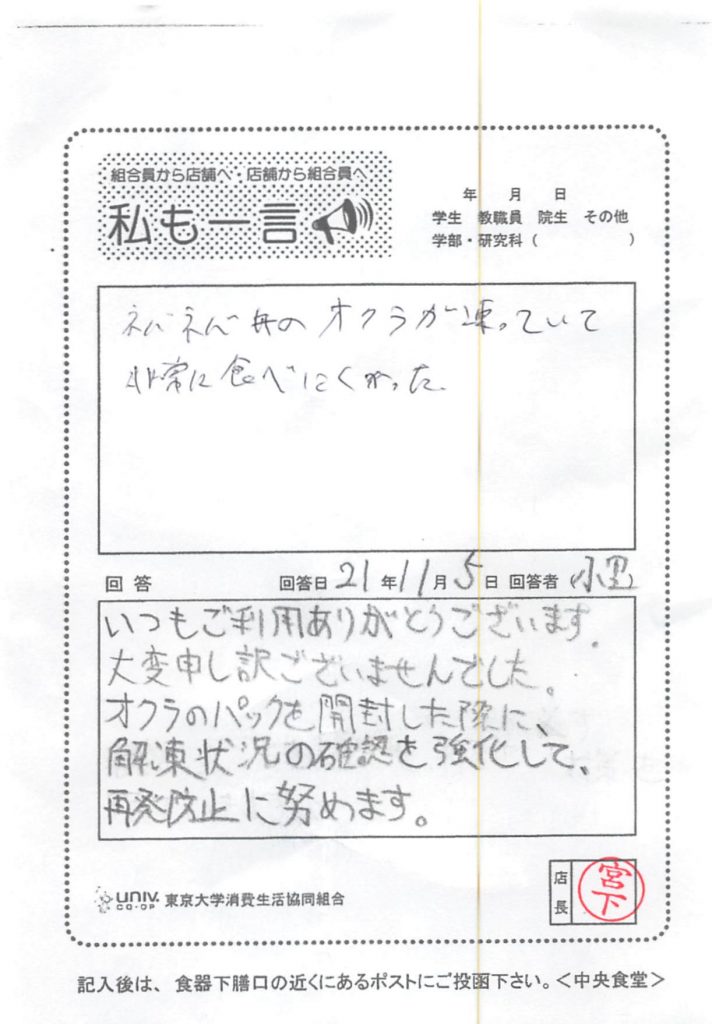 組合員から店舗へ・店舗から組合員へ
私も一言
年 月 日
学生 教職員 院生 その他
学部・研究科( )
ネバネバ丼のオクラが凍っていて
非常に食べにくかった.
回答 回答日 21年11月5日 回答者 小里
いつもご利用ありがとうございます.
大変申し訳ございませんでした。
オクラのパックを開封した際に、
解凍状況の確認を強化して、
再発防止に努めます。
UNIV. CO-OP 東京大学消費生活協同組合
店長 宮下
記入後は、食器下膳口の近くにあるポストにご投函下さい。<中央食堂>